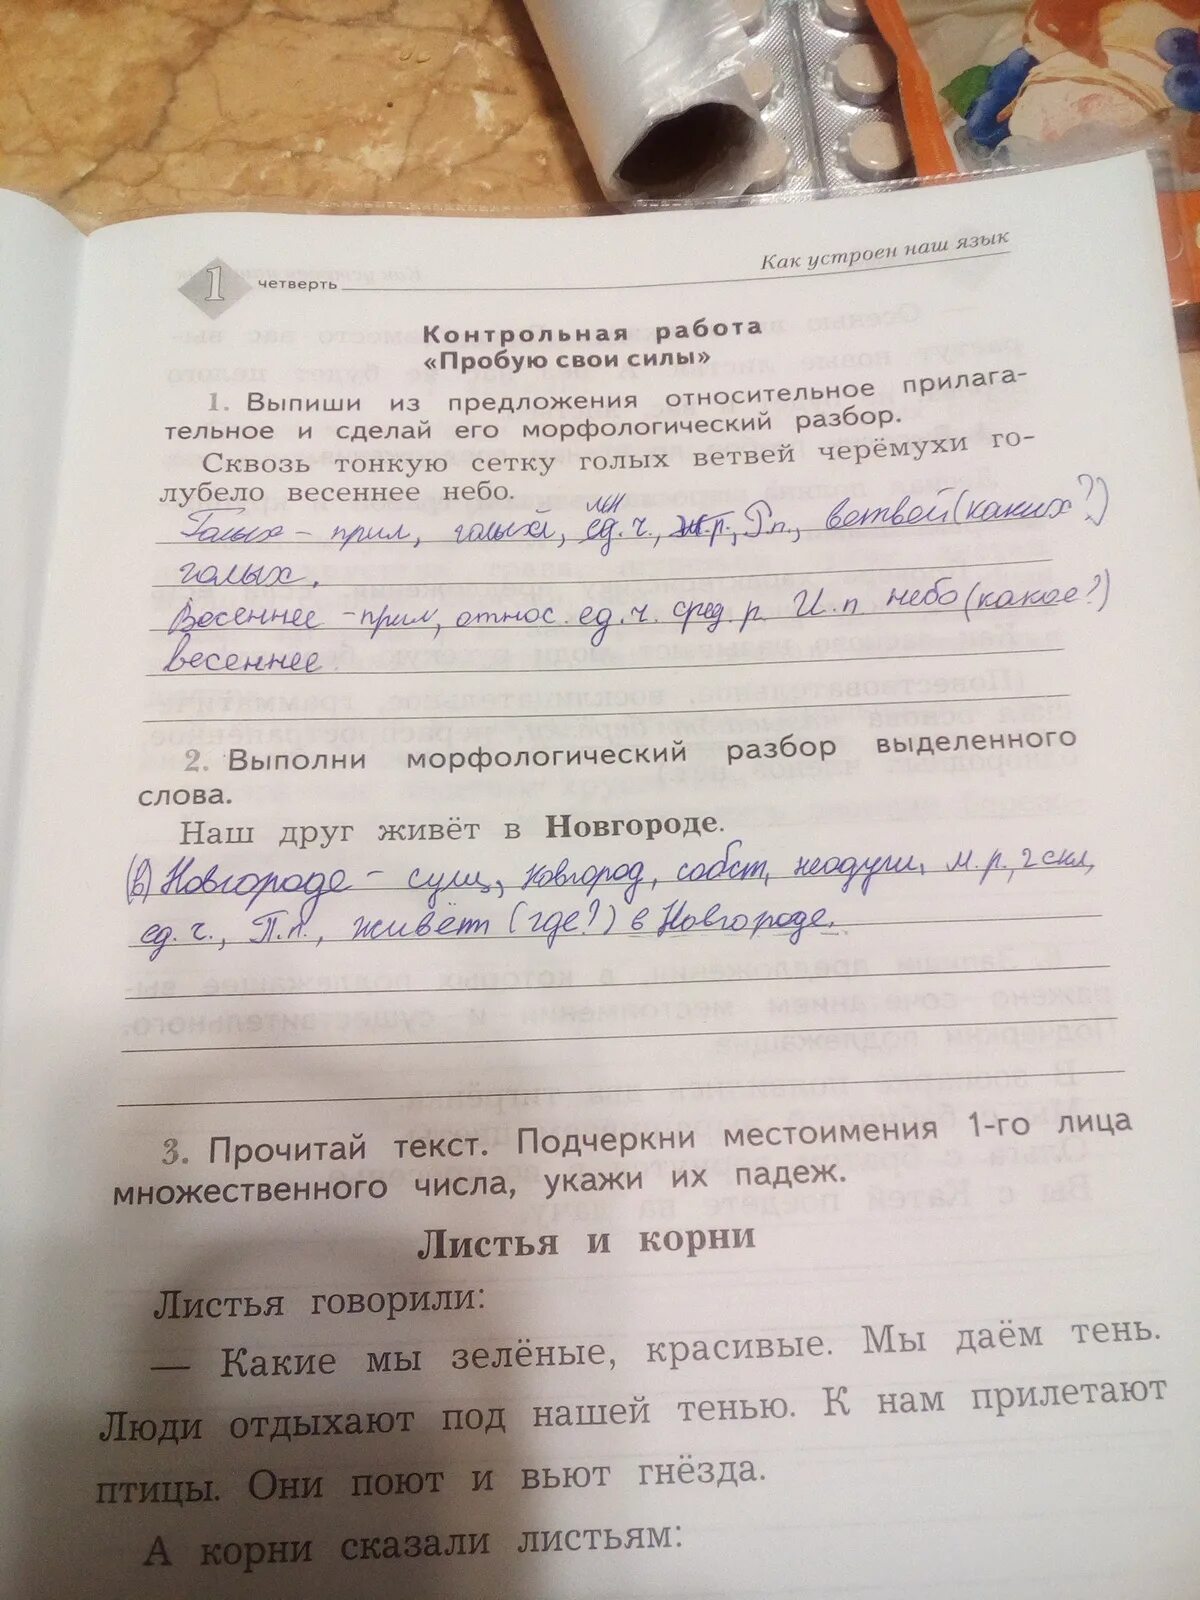 Как устроен наш язык
1 четверть
Контрольная работа
«Пробую свои силы»
1. Выпиши из предложения относительное прилага-
тельное и сделай его морфологический разбор.
Сквозь тонкую сетку голых ветвей черёмухи го-
лубело весеннее небо.
мн
Голых – прил, голый, ед. ч., ж.р., Р.п., ветвей (каких?)
голых.
Весеннее – прил, относ. ед. ч. сред. р. И. п небо (какое?)
весеннее.
2. Выполни морфологический разбор выделенного
слова.
Наш друг живёт в Новгороде.
(в) Новгороде – сущ, Новгород, собст, неодуш, м. р, 2 скл,
ед. ч., П.п., живёт (где?) в Новгороде.
3. Прочитай текст. Подчеркни местоимения 1-го лица
множественного числа, укажи их падеж.
Листья и корни
Листья говорили:
— Какие мы зелёные, красивые. Мы даём тень.
Люди отдыхают под нашей тенью. К нам прилетают
птицы. Они поют и вьют гнёзда.
А корни сказали листьям: